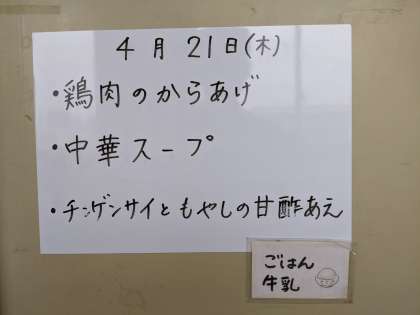 4月21日(木)
・鶏肉のからあげ
・中華スープ
・チンゲンサイともやしの甘酢あえ
ごはん
牛乳